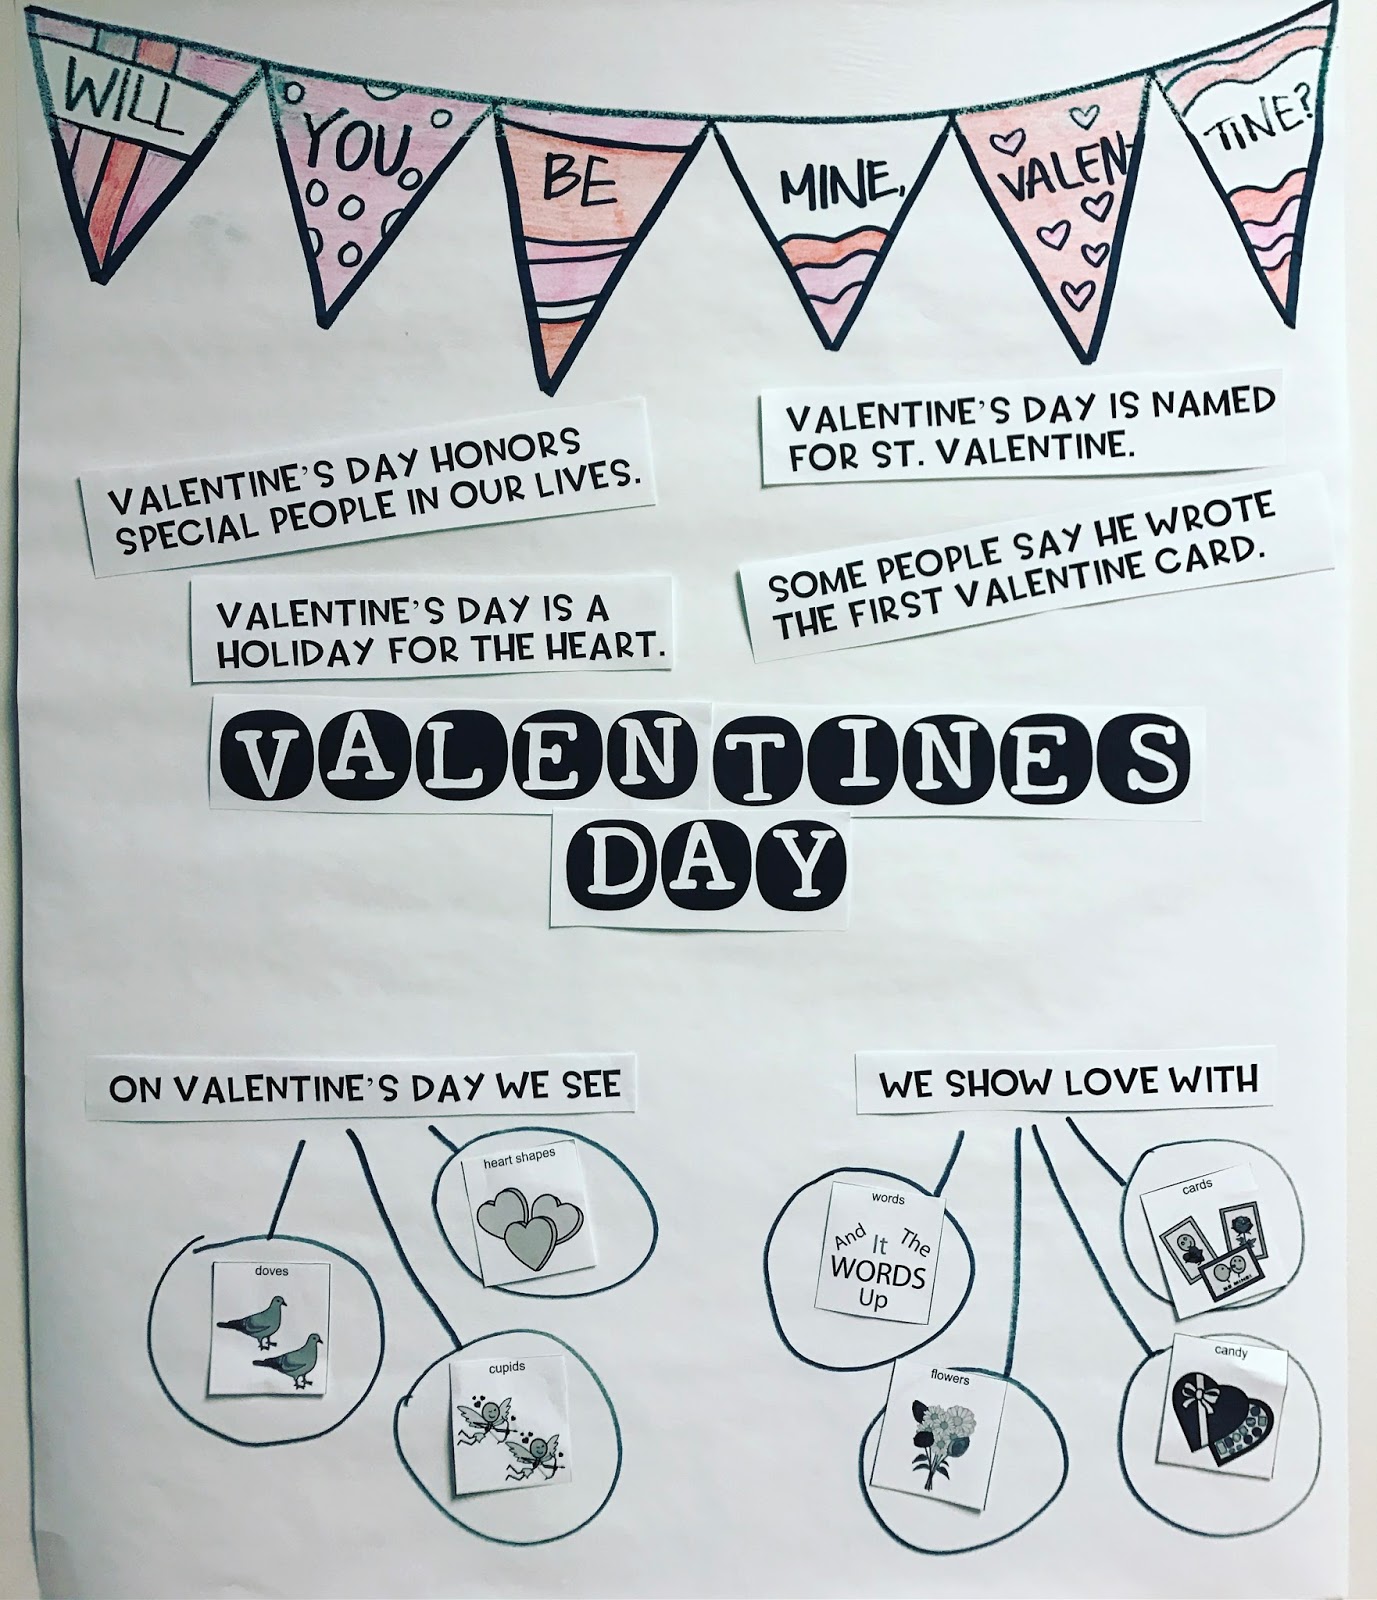 WILL
YOU
BE
MINE,
VALEN-
TINE?
VALENTINE'S DAY HONORS
SPECIAL PEOPLE IN OUR LIVES.
VALENTINE'S DAY IS NAMED
FOR ST. VALENTINE.
VALENTINE'S DAY IS A
HOLIDAY FOR THE HEART.
SOME PEOPLE SAY HE WROTE
THE FIRST VALENTINE CARD.
VALENTINES
DAY
ON VALENTINE'S DAY WE SEE
heart shapes
doves
cupids
WE SHOW LOVE WITH
words
And It The
WORDS
Up
cards
BE MINE!
flowers
candy